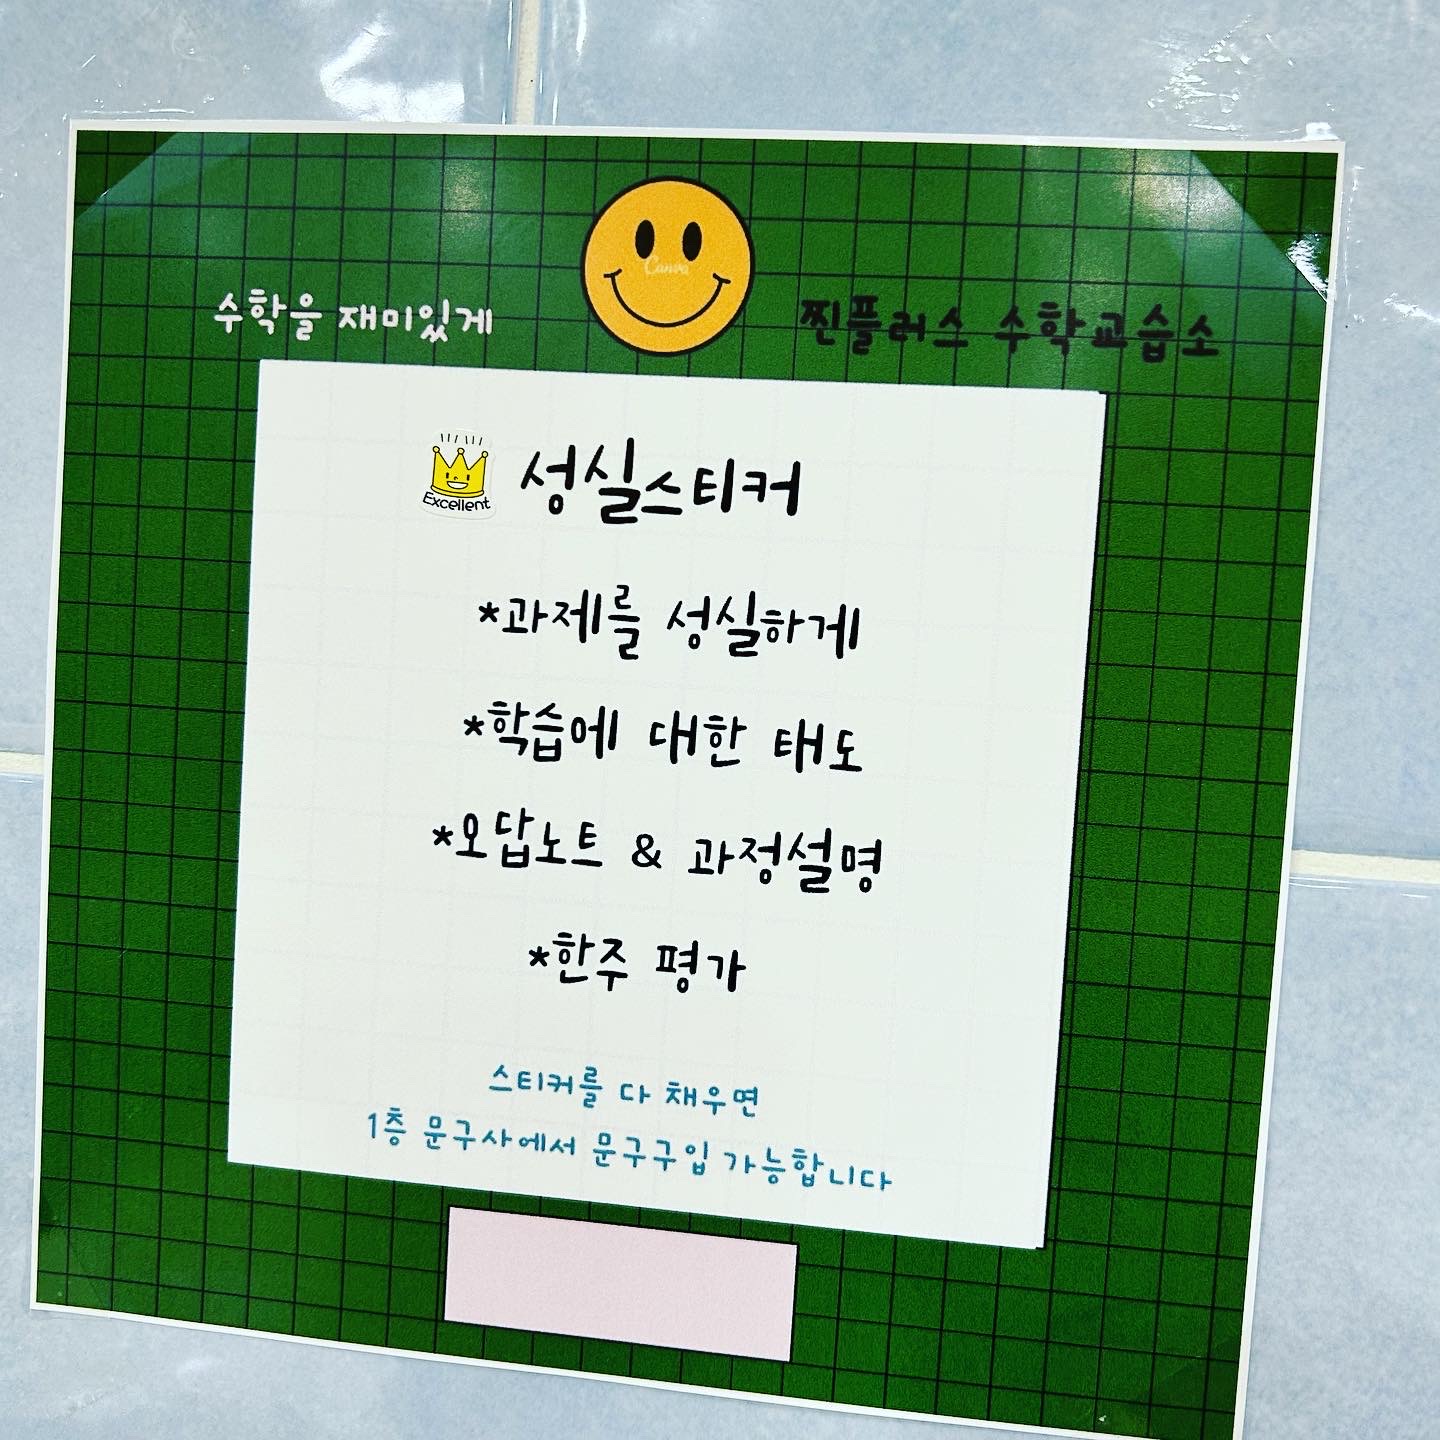 수학을 재미있게
Canva
찐플러스 수학교습소
Excellent
성실스티커
*과제를 성실하게
*학습에 대한 태도
*오답노트 & 과정설명
*한주 평가
스티커를 다 채우면
1층 문구사에서 문구구입 가능합니다